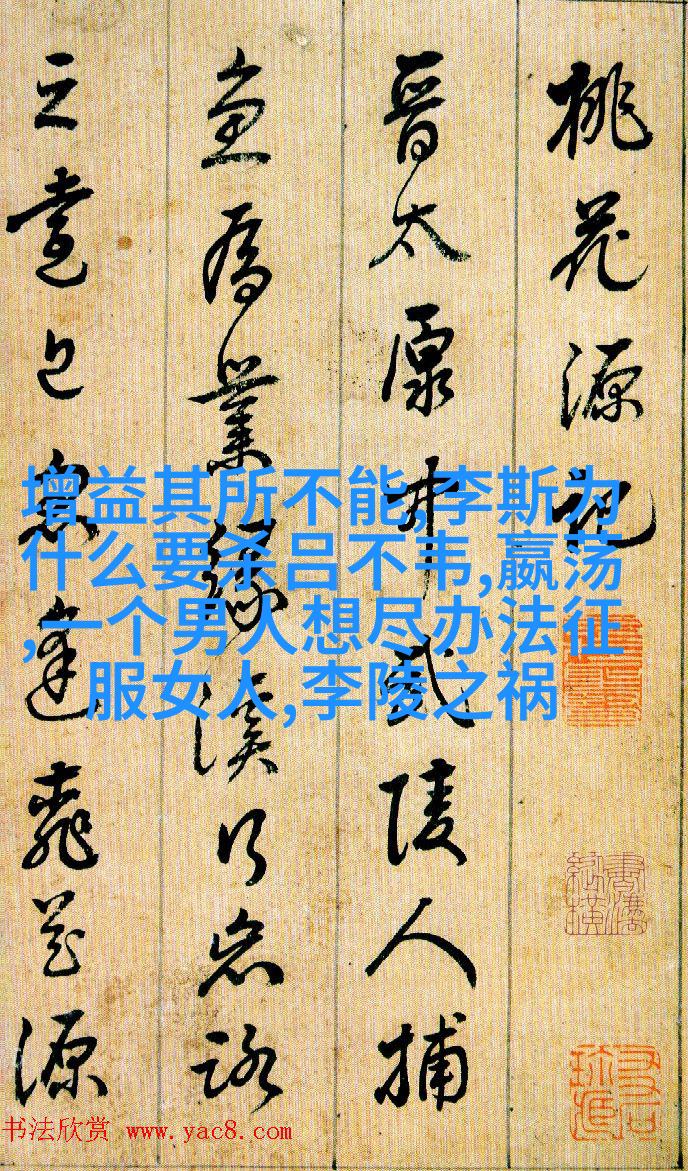 桃花源记
晉太原中武陵人捕
魚為業緣溪行忘路
之遠近忽逢桃花源
增益其所不能,李斯为
什么要杀吕不韦,嬴荡
,一个男人想尽办法征
服女人,李陵之祸
书法欣赏 www.yac8.com